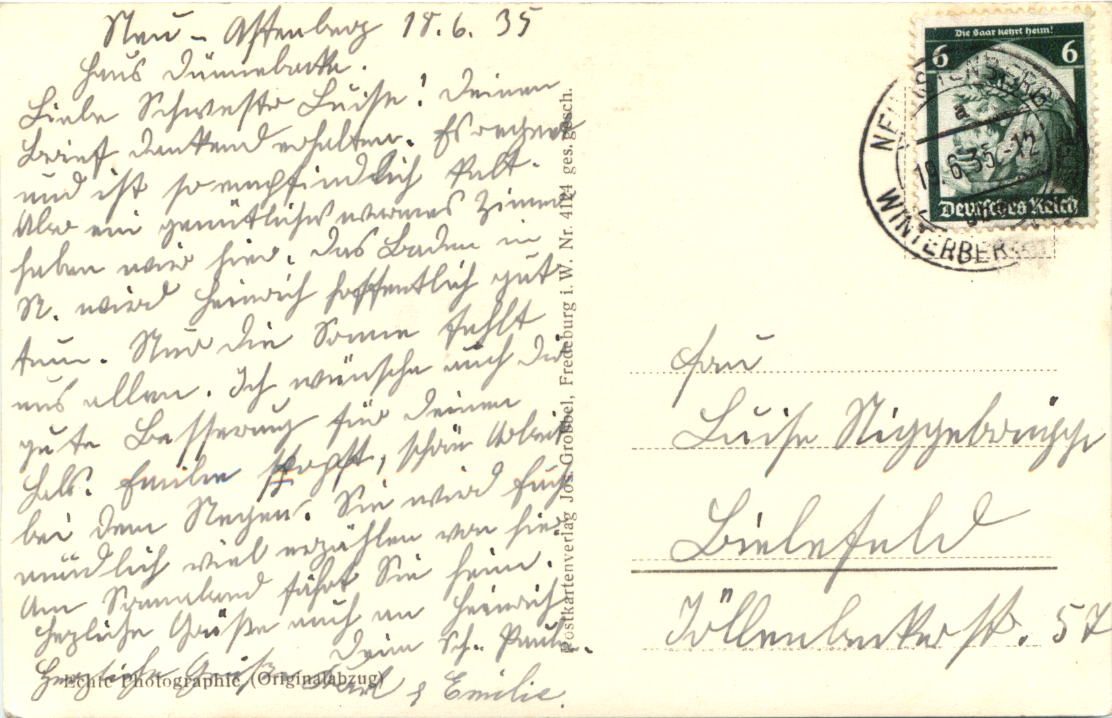 Neu-Astenberg 18.6.35
Haus Dünnebacke.
Liebe Schwester Luise! Deinen
Brief dankend erhalten. Es regnet
und ist so empfindlich kalt.
Aber ein gemütliches warmes Zimmer
haben wir hier. Das Baden in
N. wird Heinrich hoffentlich gut
tun. Nur die Sonne fehlt
uns allen. Ich wünsche auch dir
gute Besserung für Deinen
Hals. Emilie stopft, schön Arbeit
bei dem Regen. Sie wird Euch
mündlich viel erzählen von hier.
Am Sonnabend fährt Sie heim.
Herzliche Grüße auch an Heinrich
Dein Sch. Paula.
Herzliche Grüße Karl & Emilie.
Echte Photographie (Originalabzug)
Postkartenverlag Jos. Grobbel, Fredeburg i. W. Nr. 4124 ges. gesch.
Die Saar kehrt heim!
6 6
Deutsches Reich
NEUASTENBERG
19.6.35.-12
WINTERBERG
Frau
Luise Niggebrügge
Bielefeld
Jöllenbeckerstr. 57